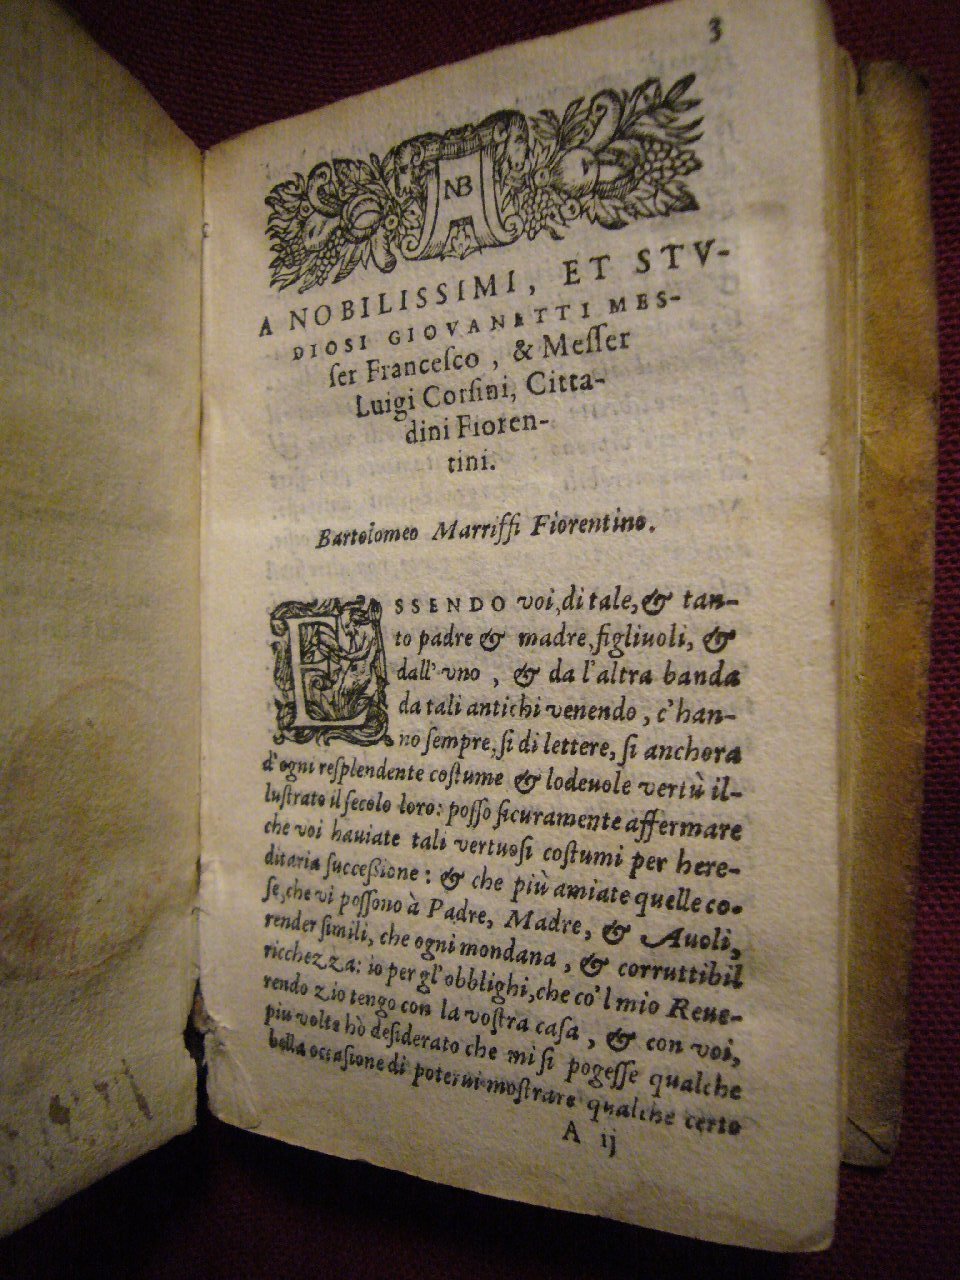 3
NB
A NOBILISSIMI, ET STV-
DIOSI GIOVANETTI MES-
ſer Franceſco, & Meſſer
Luigi Corſini, Citta-
dini Fioren-
tini.
Bartolomeo Marriffi Fiorentino.
ESSENDO voi, di tale, & tan-
to padre & madre, figliuoli, &
dall' vno, & da l'altra banda
da tali antichi venendo, c'han-
no ſempre, ſi di lettere, ſi anchora
d'ogni reſplendente coſtume & lodeuole vertù il-
luſtrato il ſecolo loro: poſſo ſicuramente affermare
che voi hauiate tali vertuoſi coſtumi per here-
ditaria ſucceßione: & che più amiate quelle co-
ſe, che vi poſſono à Padre, Madre, & Auoli,
render ſimili, che ogni mondana, & corruttibil
ricchezza: io per gl'obblighi, che co'l mio Reue-
rendo zio tengo con la voſtra caſa, & con voi,
piu volte hò deſiderato che mi ſi pogeſſe qualche
bella occaſione di poterui moſtrare qualche certo
A ij